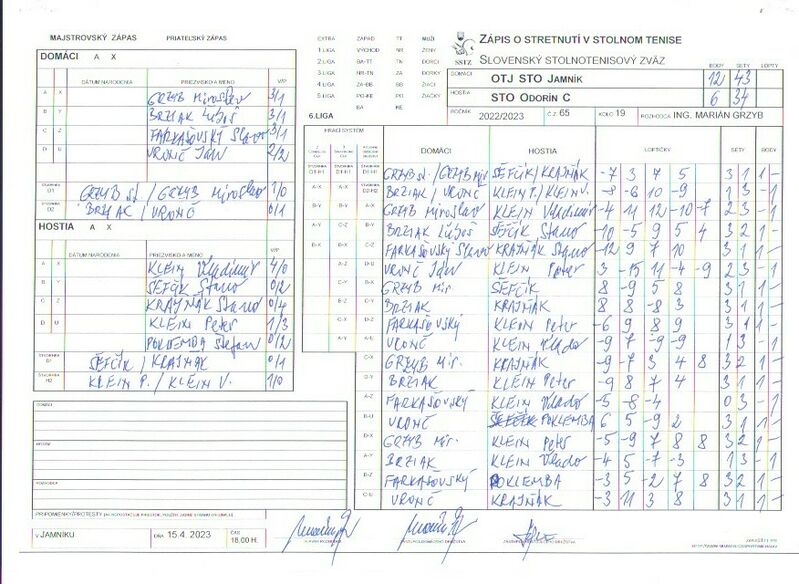 MAJSTROVSKÝ ZÁPAS PRIATEĽSKÝ ZÁPAS
DOMÁCI A X
DÁTUM NARODENIA PRIEZVISKO A MENO V/P
A X GRZYB Miroslav 3/1
B Y BRZIAK Ľuboš 3/1
C Z FARKAŠOVSKÝ Slavo 3/1
D U VRONČ Ján 2/2
ŠTVORHRA D1 GRZYB st. / GRZYB Miroslav 1/0
ŠTVORHRA D2 BRZIAK / VRONČ 0/1
HOSTIA A X
DÁTUM NARODENIA PRIEZVISKO A MENO V/P
A X KLEIN Vladimír 4/0
B Y ŠEFČÍK Stano 0/2
C Z KRAJŇÁK Stano 0/4
D U KLEIN Peter 1/3
POKLEMBA Štefan 0/2
ŠEFČÍK / KRAJŇÁK 0/1
ŠTVORHRA H2 KLEIN P. / KLEIN V. 1/0
DOMÁCI
HOSTIA
ROZHODCA
PRIPOMIENKY/PROTESTY
V JAMNÍKU DŇA 15.4. 2023 ČAS 18.00 H.
EXTRA ZÁPAD TT MUŽI
1.LIGA VÝCHOD NR ŽENY
2.LIGA BA-TT TN DORCI
3.LIGA NR-TN ZA DORKY
4.LIGA ZA-BB BB ŽIACI
5.LIGA PO-KE PO ŽIAČKY
BA KE
6.LIGA
SSTZ
ZÁPIS O STRETNUTÍ V STOLNOM TENISE
SLOVENSKÝ STOLNOTENISOVÝ ZVÄZ
BODY SETY LOPTY
DOMÁCI OTJ STO JAMNÍK 12 43
HOSTIA STO ODORÍN C 6 34
ROČNÍK 2022/2023 Č.Z. 65 KOLO 19 ROZHODCA ING. MARIÁN GRZYB
HRACÍ SYSTÉM DOMÁCI HOSTIA LOPTIČKY SETY BODY
GRZYB st. / GRZYB Mir. ŠEFČÍK/KRAJŇÁK -7 3 7 5 3 1 1 -
BRZIAK / VRONČ KLEIN P. / KLEIN V. -8 -6 10 -9 1 3 - 1
GRZYB Miroslav KLEIN Vladimír -4 11 12 -10 -7 2 3 - 1
BRZIAK Ľuboš ŠEFČÍK Stano -10 -5 9 5 4 3 2 1 -
FARKAŠOVSKÝ Slavo KRAJŇÁK Stano -12 9 7 10 3 1 1 -
VRONČ Ján KLEIN Peter 3 -15 11 -4 -9 2 3 - 1
GRZYB Mir. ŠEFČÍK 8 -9 5 8 3 1 1 -
BRZIAK KRAJŇÁK 8 8 -8 3 3 1 1 -
FARKAŠOVSKÝ KLEIN Peter -6 9 8 9 3 1 1 -
VRONČ KLEIN Vlado -9 7 -9 -9 1 3 - 1
GRZYB Mir. KRAJŇÁK -9 -7 3 4 8 3 2 1 -
BRZIAK KLEIN Peter -9 8 7 4 3 1 1 -
FARKAŠOVSKÝ KLEIN Vlado -5 -8 -4 0 3 - 1
VRONČ POKLEMBA 6 5 -9 2 3 1 1 -
GRZYB Mir. KLEIN Peter -5 -9 7 8 8 3 2 1 -
BRZIAK KLEIN Vlado -4 5 -7 -3 1 3 - 1
FARKAŠOVSKÝ POKLEMBA -3 5 -2 7 8 3 2 1 -
VRONČ KRAJŇÁK -3 11 3 8 3 1 1 -